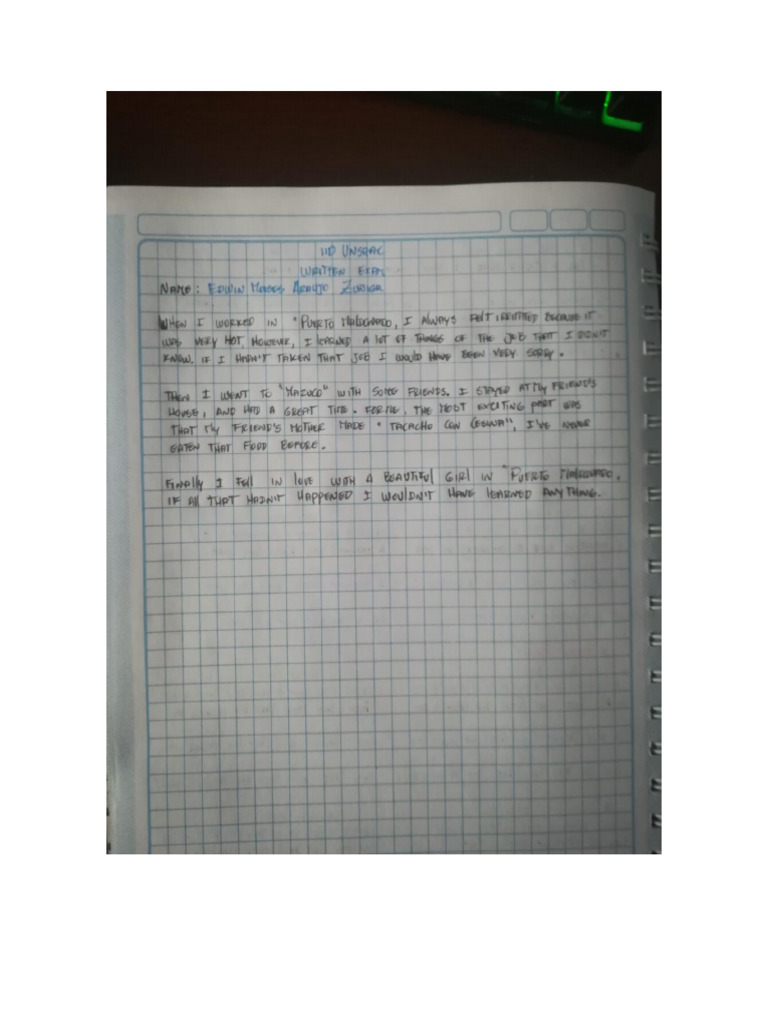 IID UNSAAC
WRITTEN EXAM
NAME: EDWIN MOISES ARAUJO ZUÑIGA
WHEN I WORKED IN "PUERTO MALDONADO, I ALWAYS FELT IRRITATED BECAUSE IT
WAS VERY HOT, HOWEVER, I LEARNED A LOT OF THINGS OF THE JOB THAT I DIDN'T
KNOW. IF I HADN'T TAKEN THAT JOB I WOULD HAVE BEEN VERY SORRY.
THEN I WENT TO "MAZUCO" WITH SOME FRIENDS. I STAYED AT MY FRIEND'S
HOUSE, AND HAD A GREAT TIME. FOR ME, THE MOST EXCITING PART WAS
THAT MY FRIEND'S MOTHER MADE "TACACHO CON CECINA", I'VE NEVER
EATEN THAT FOOD BEFORE.
FINALLY I FELL IN LOVE WITH A BEAUTIFUL GIRL IN "PUERTO MALDONADO.
IF ALL THAT HADN'T HAPPENED I WOULDN'T HAVE LEARNED ANYTHING.